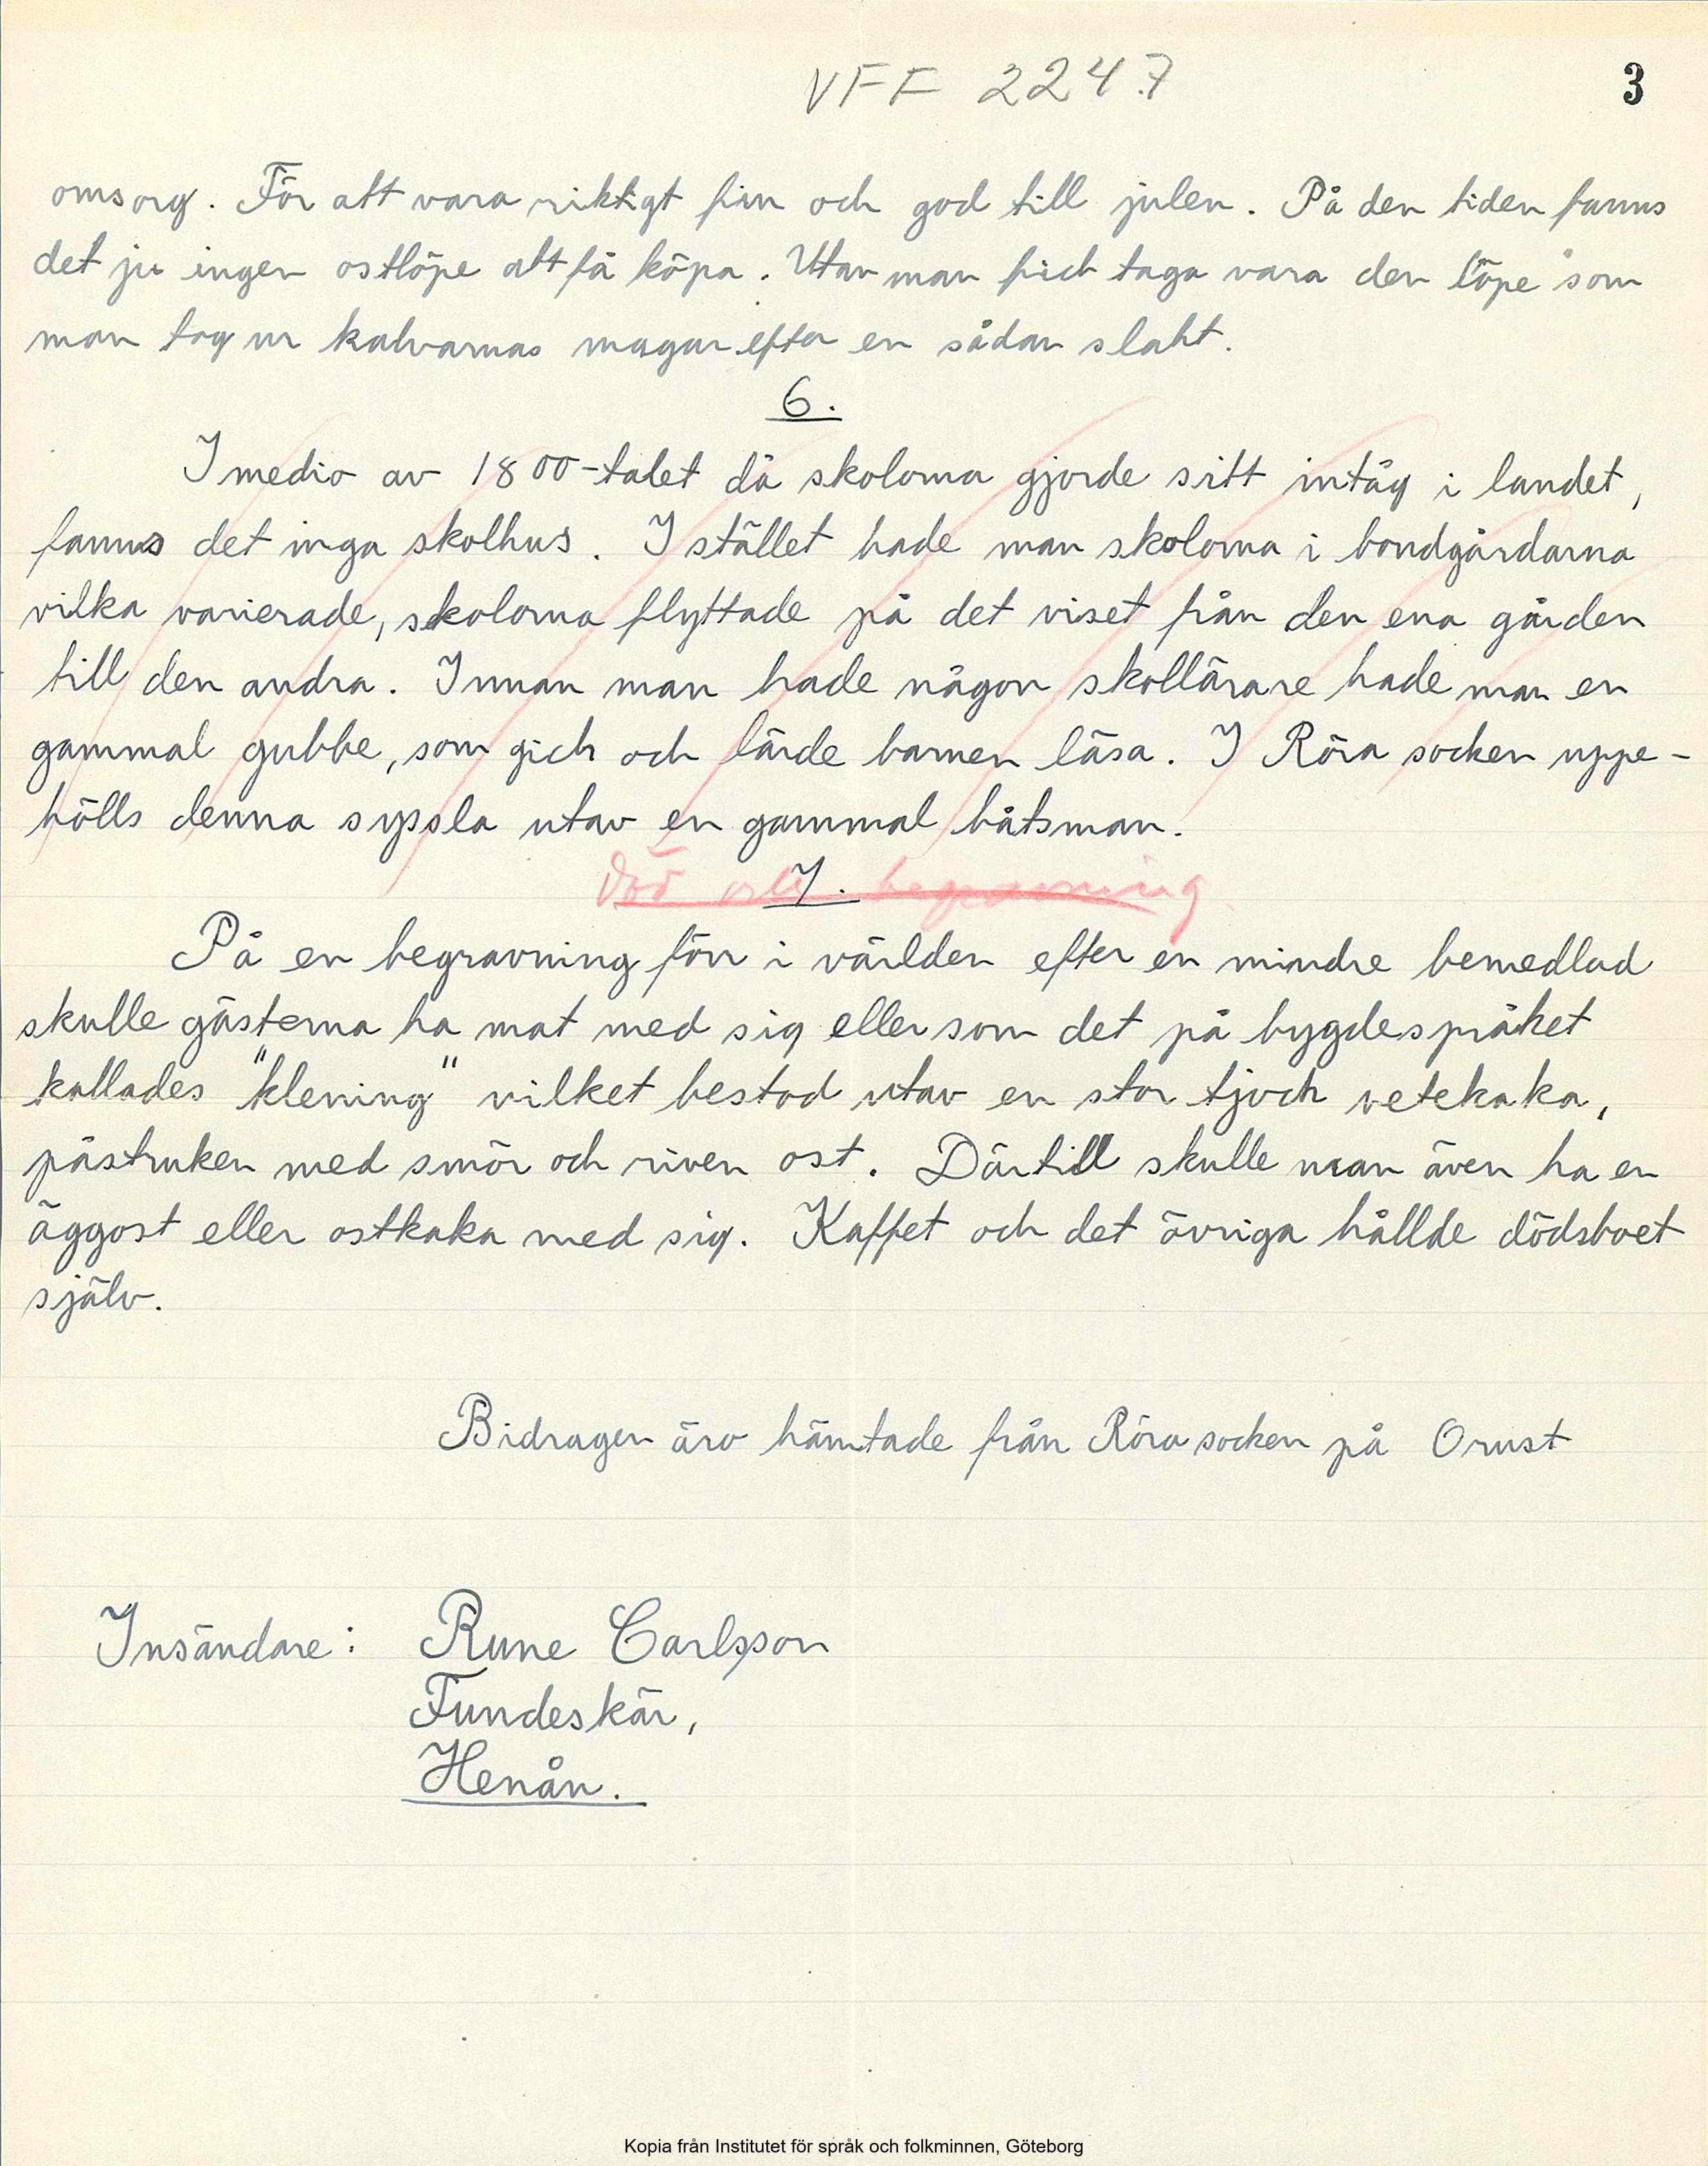 VFF 2247
3
omsorg. För att vara riktigt fin och god till julen. På den tiden fanns
det ju ingen ostlöpe att få köpa. Utan man fick taga vara den löpe som
man tog ur kalvarnas magar efter en sådan slakt.
6.
I medio av 1800-talet då skolorna gjorde sitt intåg i landet,
fanns det inga skolhus. I stället hade man skolorna i bondgårdarna
vilka varierade, skolorna flyttade på det viset från den ena gården
till den andra. Innan man hade någon skollärare hade man en
gammal gubbe, som gick och lärde barnen läsa. I Röra socken uppe-
hölls denna syssla utav en gammal båtsman.
Död och begravning
7.
På en begravning förr i världen efter en mindre bemedlad
skulle gästerna ha mat med sig eller som det på bygdespråket
kallades "klening" vilket bestod utav en stor tjock vetekaka,
påstruken med smör och riven ost. Därtill skulle man även ha en
äggost eller ostkaka med sig. Kaffet och det övriga hållde dödsboet
själv.
Bidragen äro hämtade från Röra socken på Orust
Insändare: Rune Carlsson
Fundeskär,
Henån.
Kopia från Institutet för språk och folkminnen, Göteborg